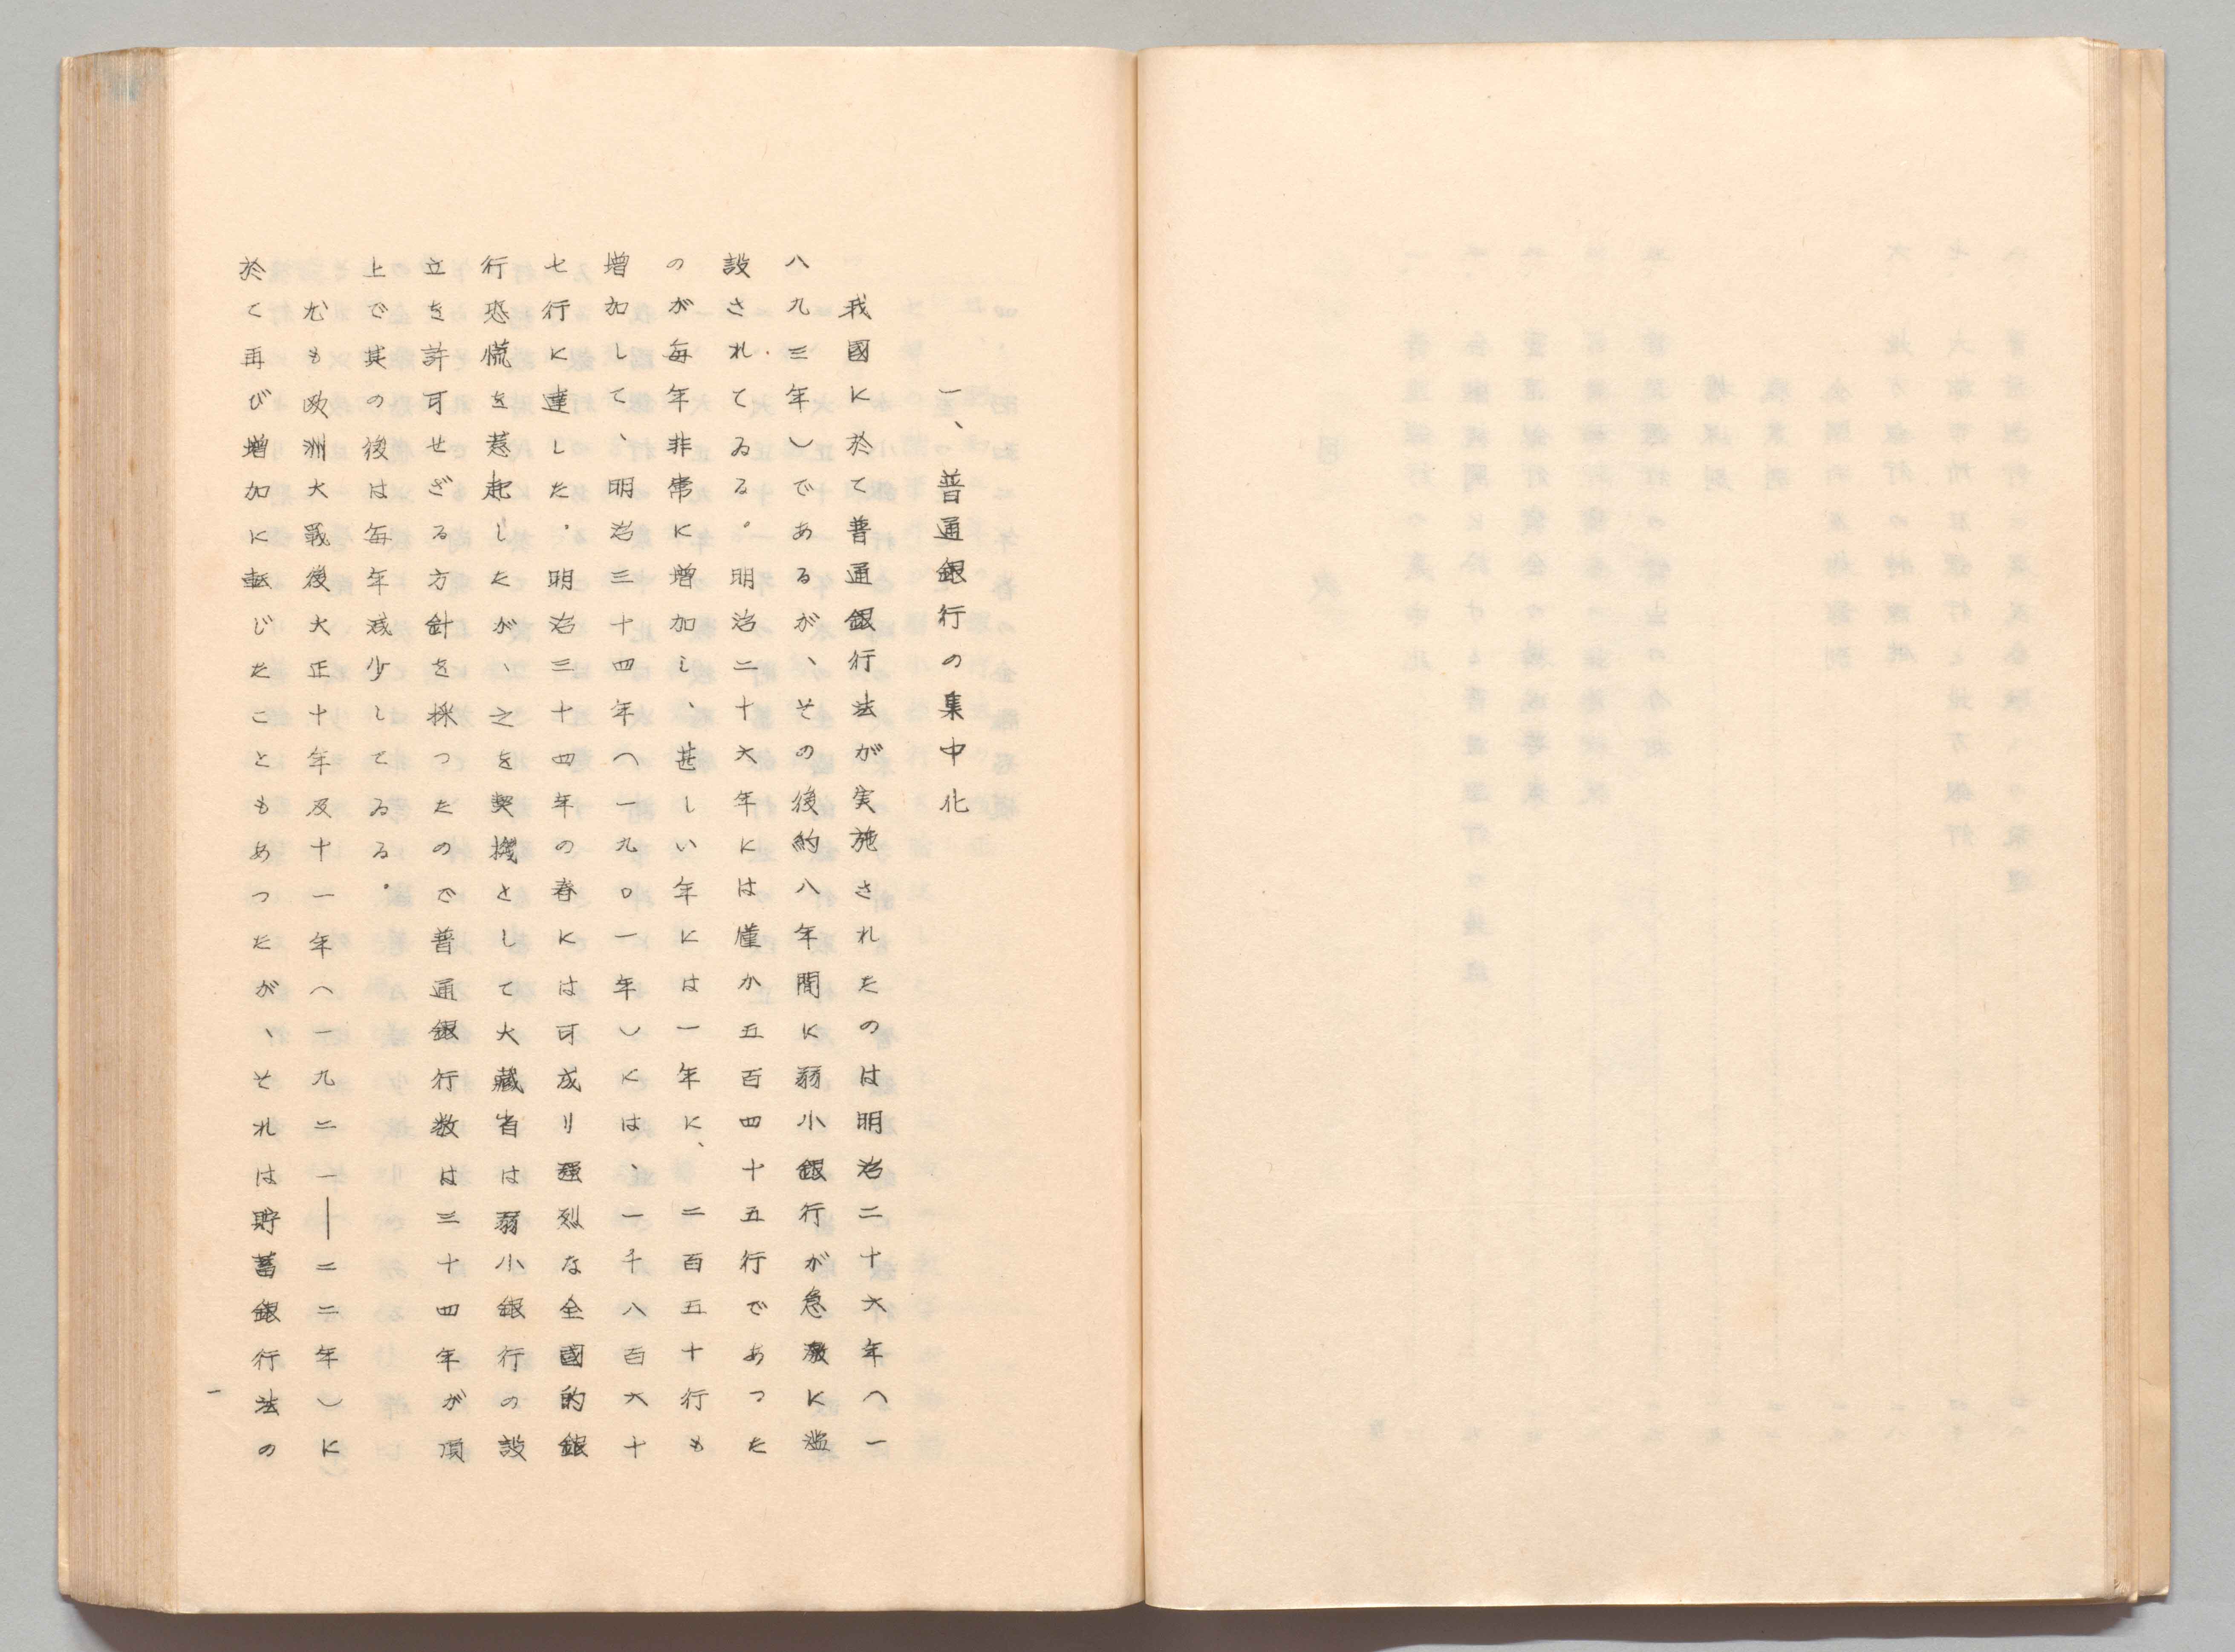 一、普通銀行の集中化
我國に於て普通銀行法が実施されたのは明治二十六年（一
八九三年）であるが、その後約八年間に弱小銀行が急激に濫
設されてゐる。明治二十六年には僅か五百四十五行であつた
のが毎年非常に増加し、甚しい年には一年に、二百五十行も
増加して、明治三十四年（一九〇一年）には、一千八百六十
七行に達した。明治三十四年の春には可成り强烈な全國的銀
行恐慌を惹起したが、之を契機として大藏省は弱小銀行の設
立を許可せざる方針を採つたので普通銀行数は三十四年が頂
上で其の後は毎年减少してゐる。
尤も欧洲大戰後大正十年及十一年（一九二一―二二年）に
於て再び増加に転じたこともあつたが、それは貯蓄銀行法の
一